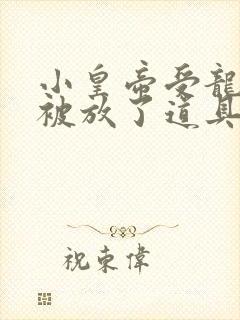 小皇帝受龍
被放了道具
祝東偉